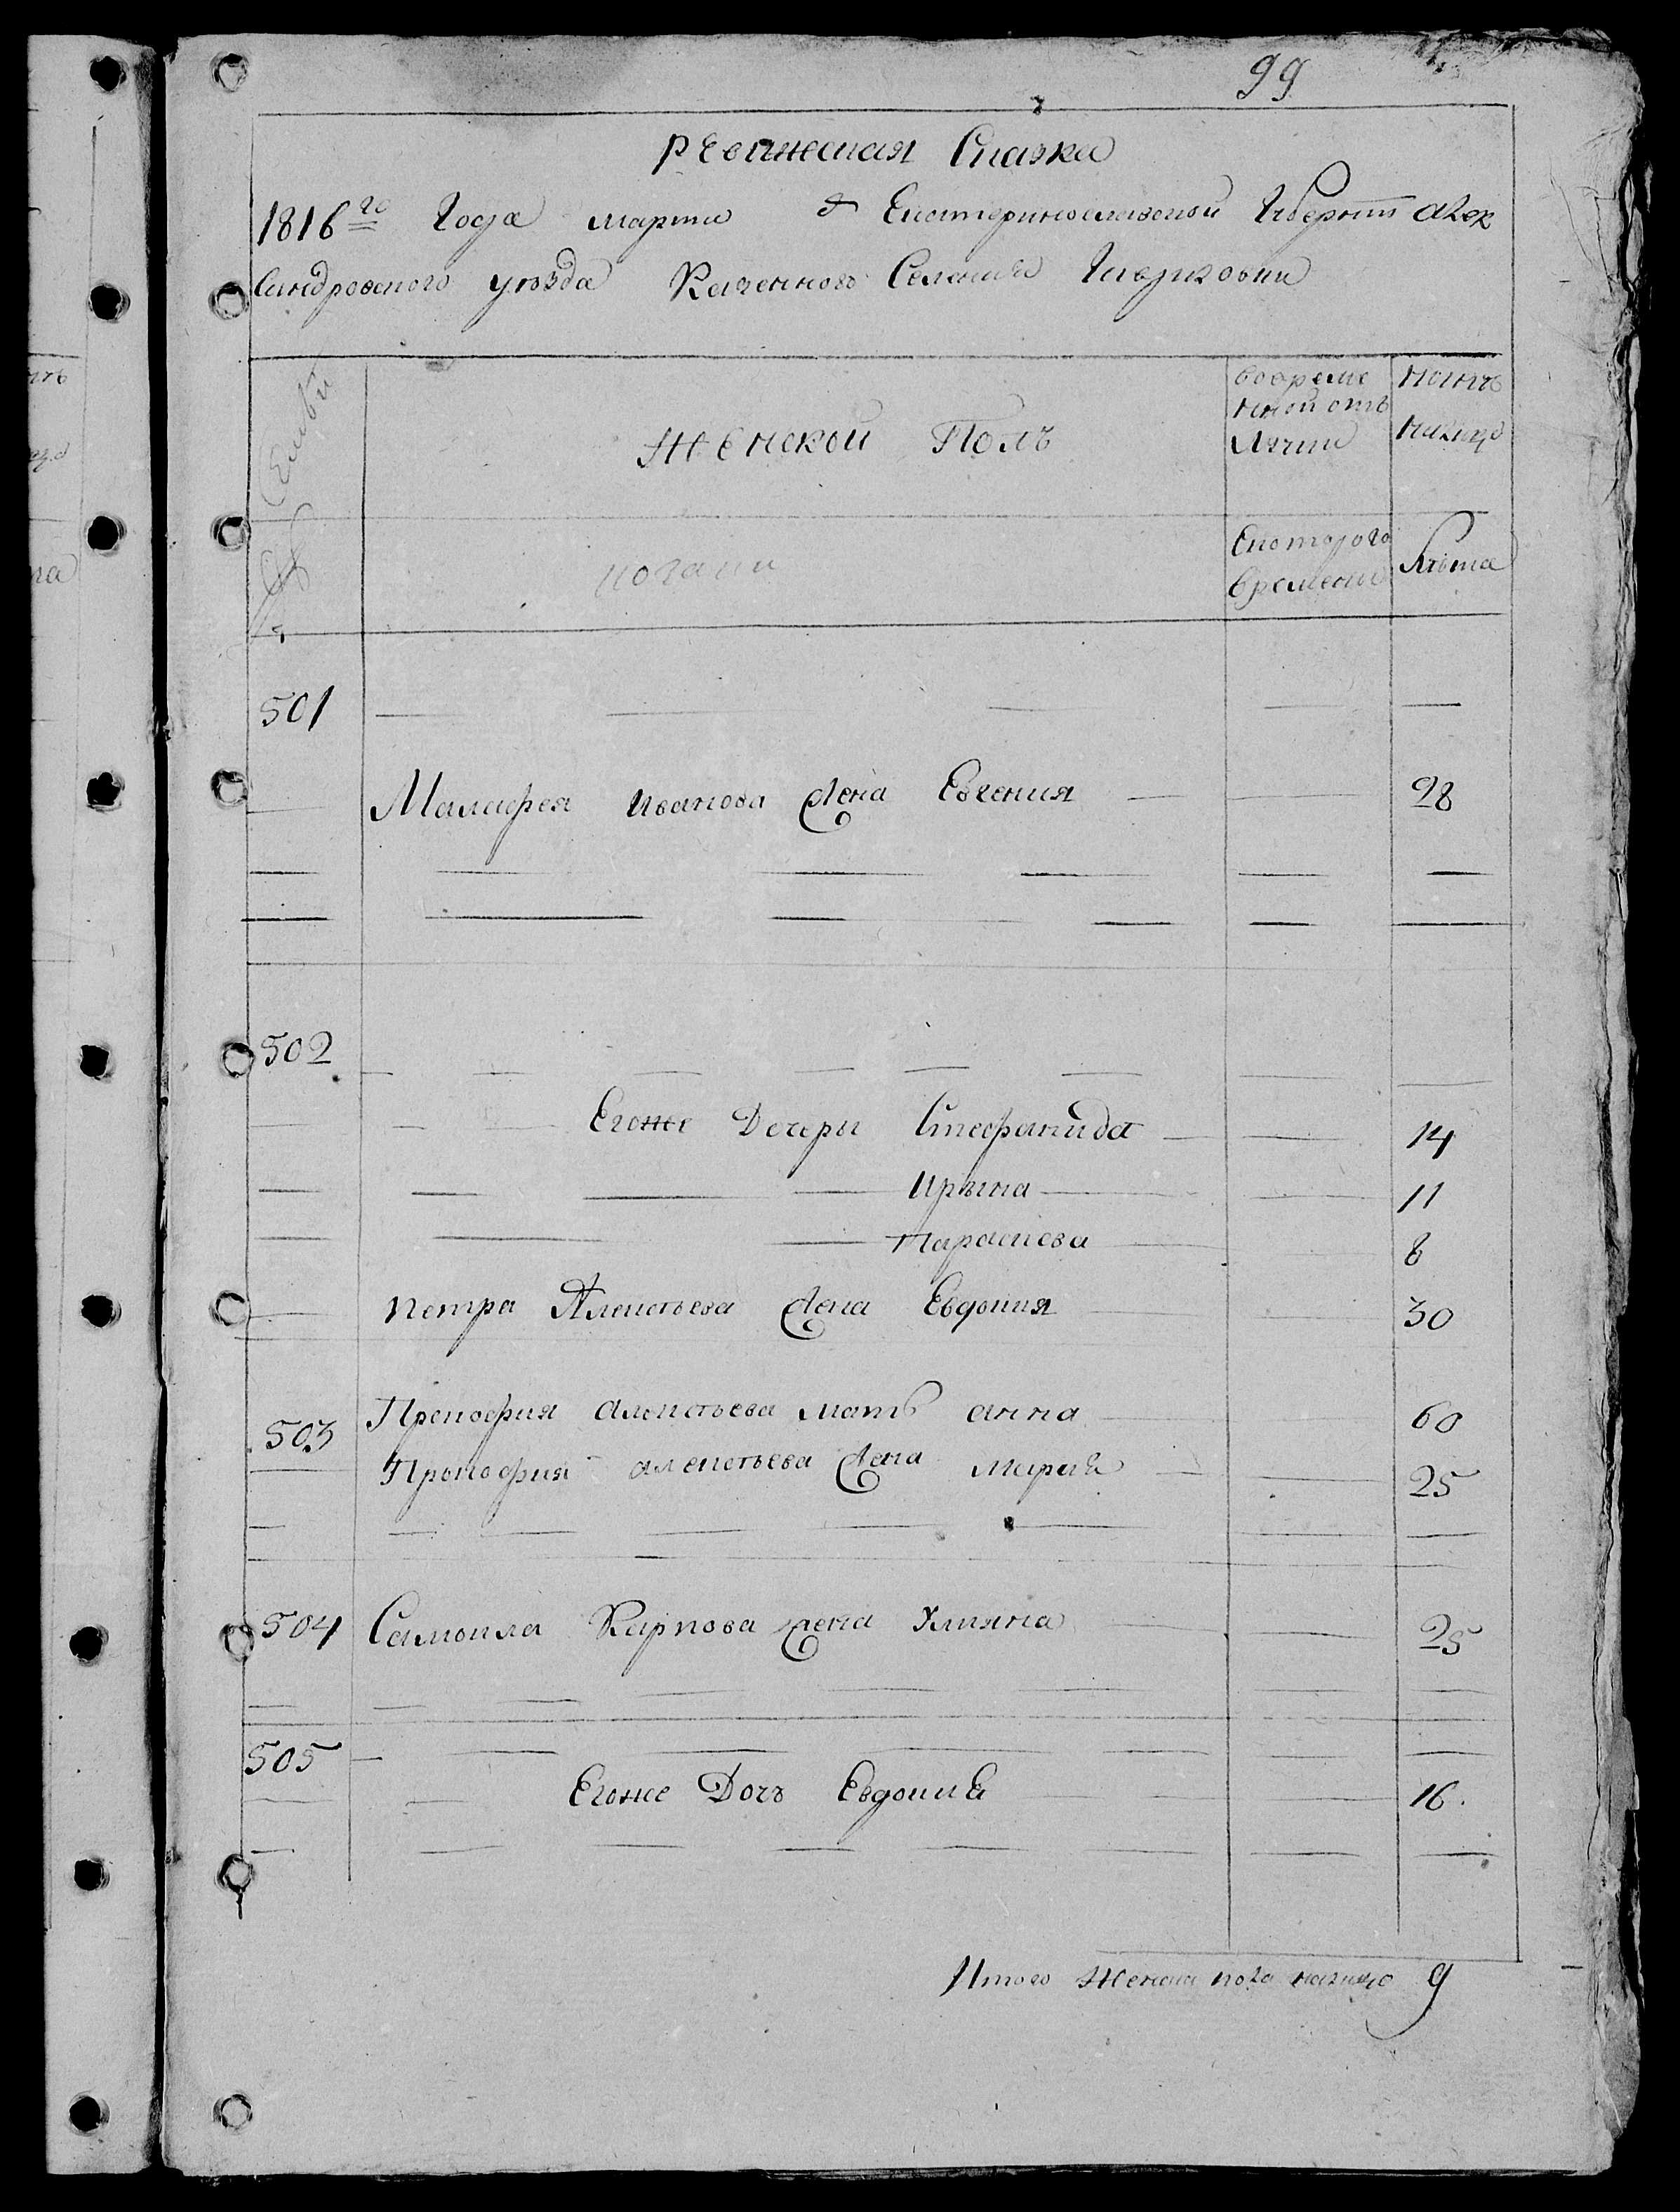 99
ревижская Сказка
1816го Года марта Екатеринославской Губернии Алек
сандровского уезда Казенного Селения Гавриловки
Семьи
Женской Полъ
вовреме
нной отъ
лучки
ноинъ
налицо
Скоторого
времени
Лъта
501
Малафея Иванова жена Евгения 28
502
Егоже Дочеры Стефанида 14
Ирына 11
Параскева 8
Петра Алексъева жена Евдокия 30
503 Прокофия Алексъева мать анна 60
Прокофия алексъева жена Мария 25
504 Самоила Карпова жена Улияна 25
505
Егоже Дочъ Евдокия 16.
Итого женска пола налицо 9